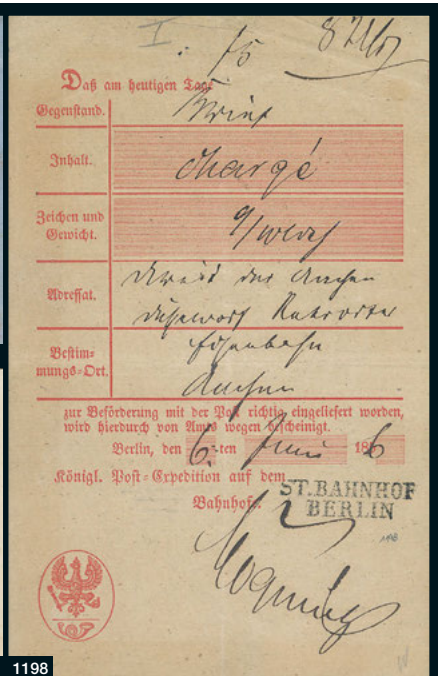 I
75 8 Uhr
Daß am heutigen Tage
Gegenstand. Brief
Inhalt. Chargé
Zeichen und
Gewicht.
Adressat. der Aachen
Düsseldorf Ruhrorter
Bestim-
mungs-Ort. Eisenbahn
Aachen
zur Beförderung mit der Post richtig eingeliefert worden,
wird hierdurch von Amts wegen bescheinigt.
Berlin, den 6. ten Juni 18 6
Königl. Post-Expedition auf dem
Bahnhofe.
ST. BAHNHOF
BERLIN
1198